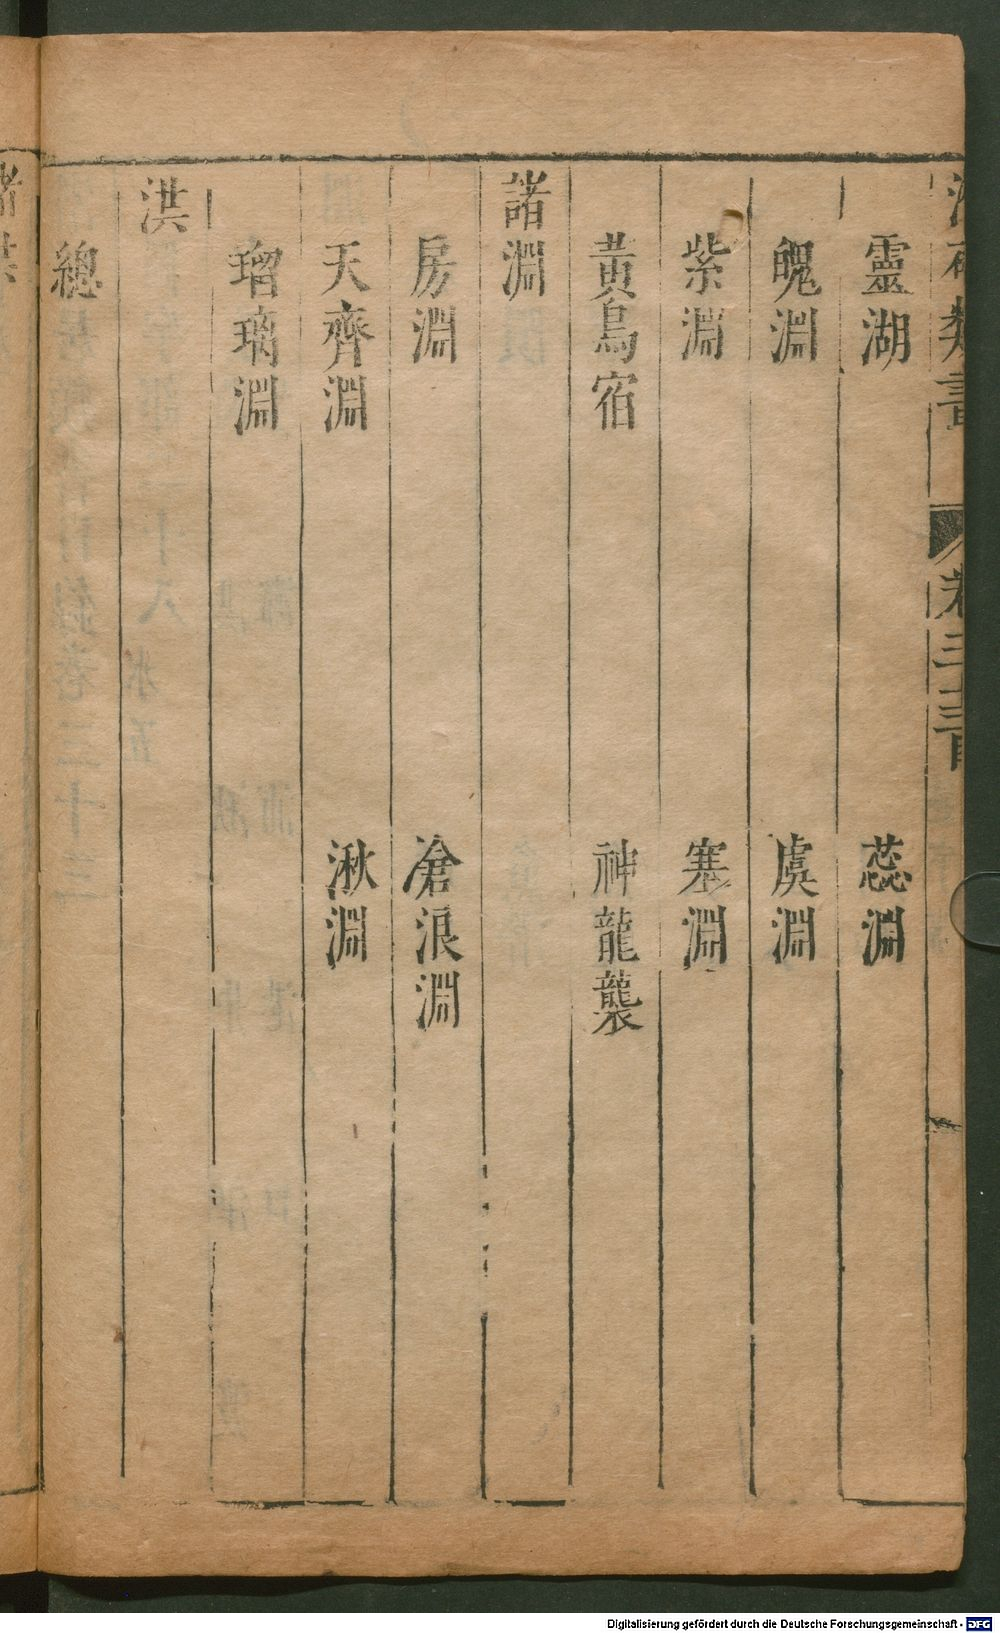 類書
卷三
靈湖 蕊淵
魄淵 虞淵
紫淵 塞淵
黃鳥宿 神龍襲
諸淵
房淵 滄浪淵
天齊淵 湫淵
瑠璃淵
洪
總
諸
Digitalisierung gefördert durch die Deutsche Forschungsgemeinschaft - DFG